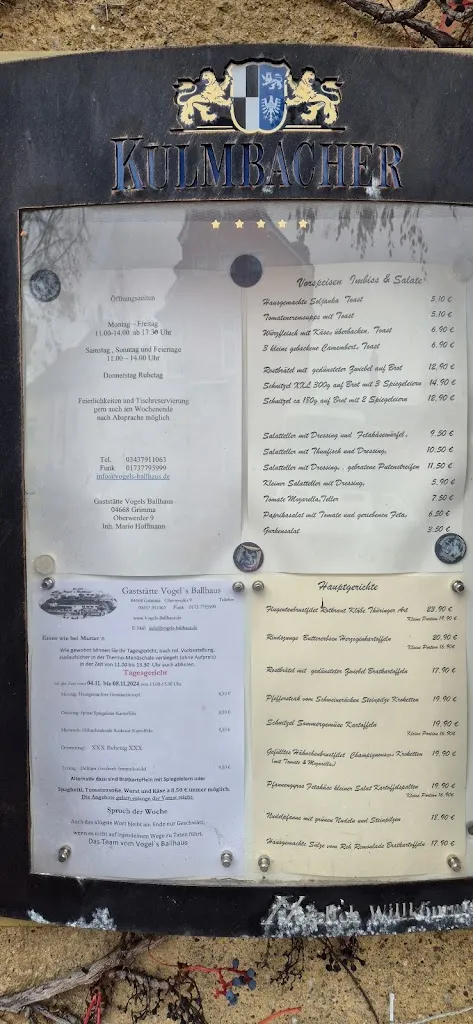 KULMBACHER
Öffnungszeiten
Montag - Freitag
11.00-14.00 ab 17.30 Uhr
Samstag, Sonntag und Feiertage
11.00 - 14.00 Uhr
Donnerstag Ruhetag
Feierlichkeiten und Tischreservierung
gern auch am Wochenende
nach Absprache möglich
Tel. 03437911063
Funk 01737795999
info@vogels-ballhaus.de
Gaststätte Vogels Ballhaus
04668 Grimma
Oberwerder 9
Inh. Mario Hoffmann
Vorspeisen Imbiss & Salate
Hausgemachte Soljanka Toast 5,10 €
Tomatencremsuppe mit Toast 5,10 €
Würzfleisch mit Käse überbacken, Toast 6,90 €
3 kleine gebackene Camembert, Toast 6,90 €
Rostbrätel mit gedünsteter Zwiebel auf Brot 12,90 €
Schnitzel XXL 300g auf Brot mit 3 Spiegeleiern 14,90 €
Schnitzel ca 180g auf Brot mit 2 Spiegeleiern 12,90 €
Salatteller mit Dressing und Fetakäsewürfel, 9,50 €
Salatteller mit Thunfisch und Dressing, 10,50 €
Salatteller mit Dressing, gebratene Putenstreifen 11,50 €
Kleiner Salatteller mit Dressing, 5,90 €
Tomate Mozarella, Teller 7,50 €
Paprikasalat mit Tomate und geriebenen Feta, 6,50 €
Gurkensalat 3,50 €
Gaststätte Vogel`s Ballhaus
04668 Grimma Oberwerder 9 Telefon
03437 911063 Funk 0173 7795999
www.Vogels-Ballhaus.de
E-Mail: info@vogels-ballhaus.de
Essen wie bei Mutter`n
Wie gewohnt können Sie Ihr Tagesgericht, auch mit Vorbestellung,
außer Haus in der Thermo-Menüschale verzehren (ohne Aufpreis)
in der Zeit von 11.00 bis 13.30 Uhr auch abholen.
Tagesgericht
04.11. bis 08.11.2024 von 11.00-13.30 Uhr
Donnerstag: XXX Ruhetag XXX
Alternativ dazu sind Bratkartoffeln mit Spiegeleiern oder
Spaghetti, Tomatensoße, Wurst und Käse a 8.50 € immer möglich.
Die Angebote gelten solange der Vorrat reicht.
Spruch der Woche
Auch das klügste Wort bleibt am Ende nur Geschwätz,
wenn es nicht auf irgendeinem Wege zu Taten führt.
Das Team vom Vogel`s Ballhaus
Hauptgerichte
Flugentenbrustfilet Rotkraut Klöße Thüringer Art 23,90 €
Kleine Portion 19,90 €
Rindszunge Buttererbsen Herzoginkartoffeln 20,90 €
Kleine Portion 16,90 €
Rostbrätel mit gedünsteter Zwiebel Bratkartoffeln 17,90 €
Pfeffersteak vom Schweinerücken Steinpilze Kroketten 19,90 €
Schnitzel Sommergemüse Kartoffeln 19,90 €
Kleine Portion 16,90 €
Gefülltes Hähnchenbrustfilet Champignonsoß Kroketten 19,90 €
(mit Tomate & Mozarella)
Pfannengyros Fetakäse kleiner Salat Kartoffelspalten 19,90 €
Kleine Portion 16,90 €
Nudelpfanne mit grünen Nudeln und Steinpilzen 18,90 €
Hausgemachte Sülze vom Reh Remoulade Bratkartoffeln 17,90 €